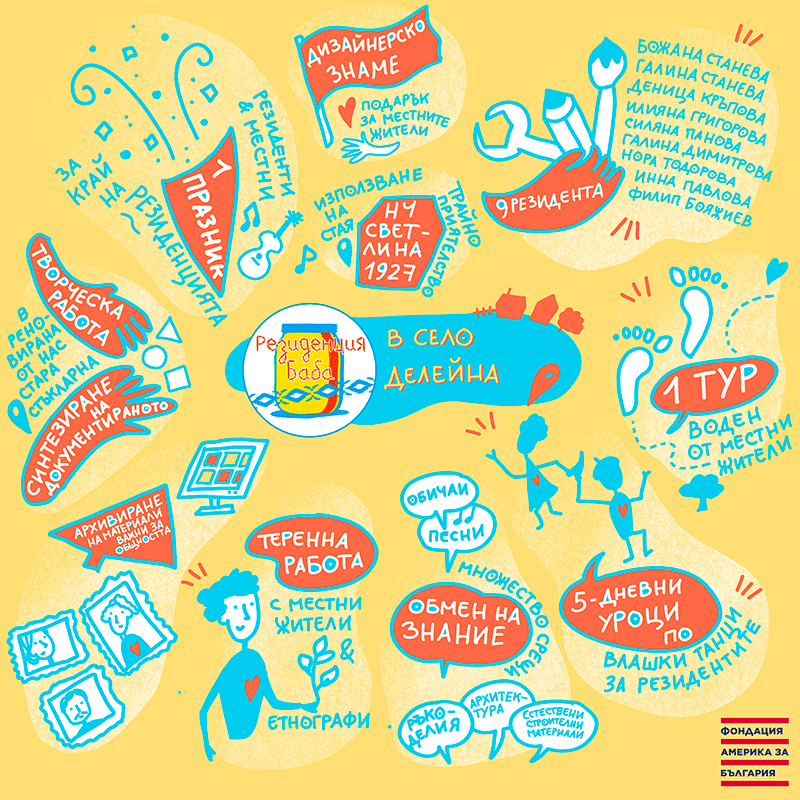 ДИЗАЙНЕРСКО
ЗНАМЕ
ПОДАРЪК
ЗА МЕСТНИТЕ
ЖИТЕЛИ
БОЖАНА СТАНЕВА
ГАЛИНА СТАНЕВА
ДЕНИЦА КРЪПОВА
ИЛИЯНА ГРИГОРОВА
СИЛЯНА ПАНОВА
ГАЛИНА ДИМИТРОВА
НОРА ТОДОРОВА
ИННА ПАВЛОВА
ФИЛИП БОЯЖИЕВ
9 РЕЗИДЕНТА
1
ПРАЗНИК
ЗА
КРАЙ
НА
РЕЗИДЕНЦИЯТА
РЕЗИДЕНТИ
& МЕСТНИ
ИЗПОЛЗВАНЕ
НА
СТАЯ
НЧ
СВЕТ-
ЛИНА
1927
ТРАЙНО
ПРИЯТЕЛСТВО
ТВОРЧЕСКА
РАБОТА
В
РЕНО-
ВИРАНА
ОТ НАС
СТАРА
СТЪКЛАРНА
СИНТЕЗИРАНЕ
НА
ДОКУМЕНТИРАНОТО
Резиденция
Баба
В СЕЛО
ДЕЛЕЙНА
1 ТУР
ВОДЕН
ОТ МЕСТНИ
ЖИТЕЛИ
АРХИВИРАНЕ
НА МАТЕРИАЛИ
ВАЖНИ ЗА
ОБЩНОСТТА
ТЕРЕННА
РАБОТА
С МЕСТНИ
ЖИТЕЛИ
&
ЕТНОГРАФИ
ОБИЧАИ
ПЕСНИ
ОБМЕН НА
ЗНАНИЕ
МНОЖЕСТВО СРЕЩИ
РЪКО-
ДЕЛИЯ
АРХИТЕК-
ТУРА
ЕСТЕСТВЕНИ
СТРОИТЕЛНИ
МАТЕРИАЛИ
5-ДНЕВНИ
УРОЦИ
ПО
ВЛАШКИ ТАНЦИ
ЗА РЕЗИДЕНТИТЕ
ФОНДАЦИЯ
АМЕРИКА ЗА
БЪЛГАРИЯ